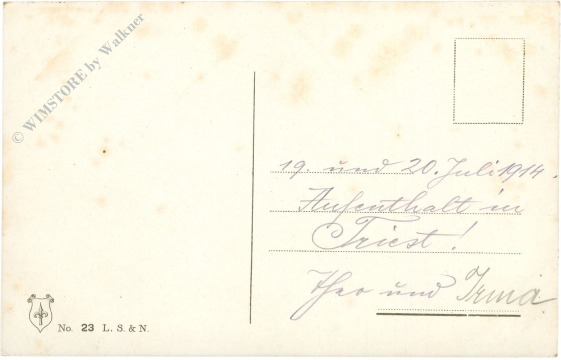 © WIMSTORE by Walkner
19. und 20. Juli 1914.
Aufenthalt in
Triest!
Theo und Irma
No. 23 L. S. & N.